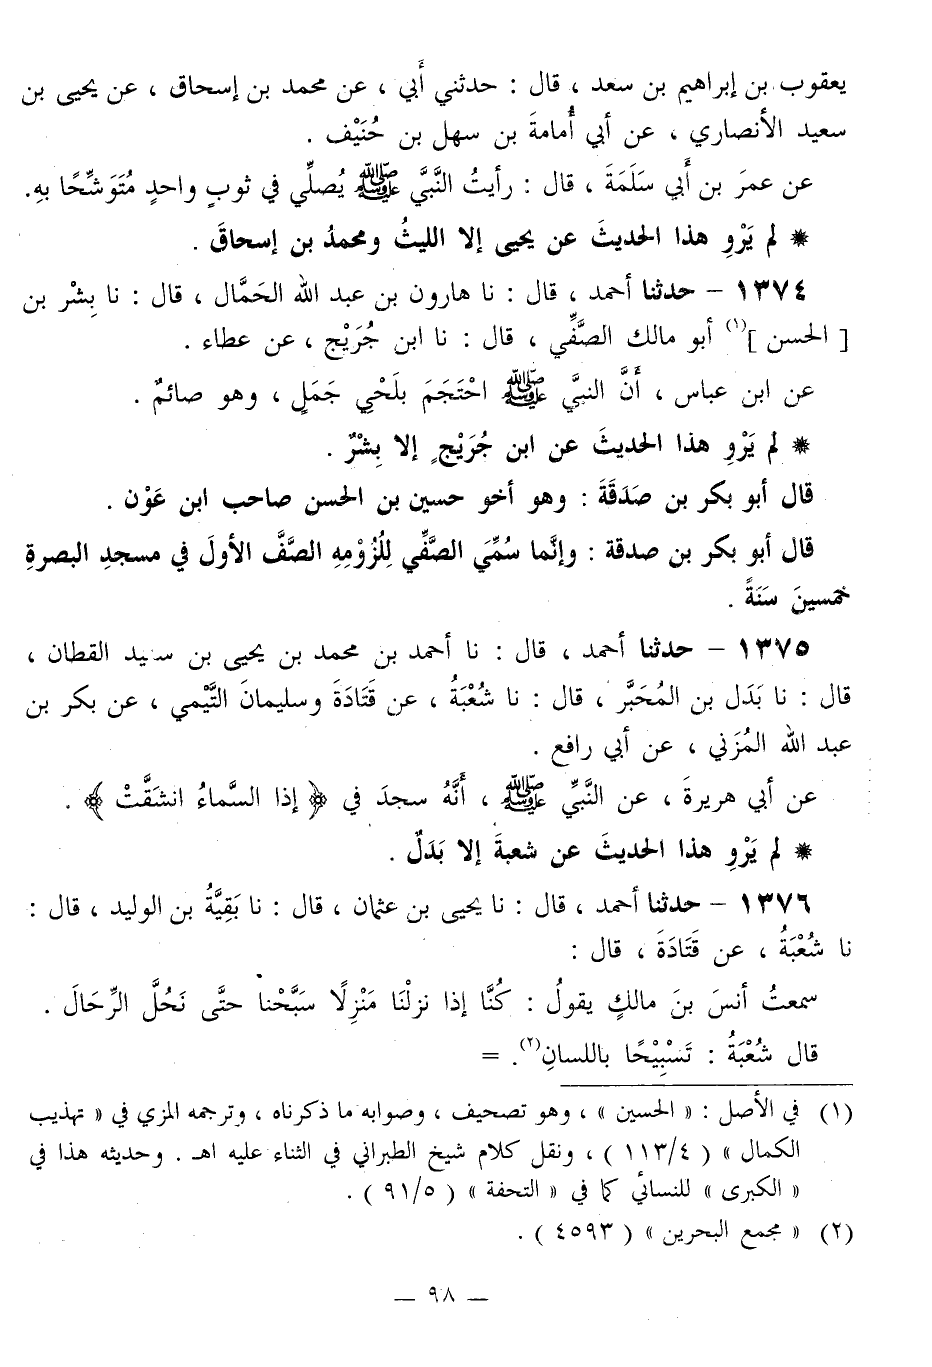 يعقوب بن إبراهيم بن سعد ، قال : حدثني أَبي ، عن محمد بن إسحاق ، عن يحيى بن
سعيد الأنصاري ، عن أبي أُمامةَ بن سهل بن حُنَيْف .
عن عمرَ بن أَبي سَلَمَةَ ، قال : رأيتُ النَّبيَّ ﷺ يُصلِّي في ثوبٍ واحدٍ مُتَوَشِّحًا بهِ.
* لم يَرْوِ هذا الحديثَ عن يحيى إلا الليثُ ومحمدُ بن إسحاقَ .
١٣٧٤ – حدثنا أحمد ، قال : نا هارون بن عبد الله الحَمَّال ، قال : نا بِشْر بن
[ الحسن ](١) أبو مالك الصَّفِّي ، قال : نا ابن جُرَيْج ، عن عطاء .
عن ابن عباس ، أَنَّ النبيَّ ﷺ احْتَجَمَ بلَحْيِ جَمَلٍ ، وهو صائمٌ .
* لم يَرْوِ هذا الحديثَ عن ابن جُرَيْجٍ إلا بِشْرٌ .
قال أبو بكر بن صَدَقَةَ : وهو أخو حسين بن الحسن صاحب ابن عَوْن .
قال أبو بكر بن صدقة : وإنَّما سُمِّيَ الصَّفِّي لِلُزُوْمِهِ الصَّفَّ الأولَ في مسجدِ البصرةِ
خمسينَ سَنَةً .
١٣٧٥ – حدثنا أحمد ، قال : نا أحمد بن محمد بن يحيى بن سعيد القطان ،
قال : نا بَدَل بن المُحَبَّر ، قال : نا شُعْبَةُ ، عن قَتَادَةَ وسليمانَ التَّيْمي ، عن بكر بن
عبد الله المُزَني ، عن أبي رافع .
عن أبي هريرةَ ، عن النَّبيِّ ﷺ ، أَنَّهُ سجدَ في ﴿ إذا السَّماءُ انشَقَّتْ ﴾ .
* لم يَرْوِ هذا الحديثَ عن شعبةَ إلا بَدَلٌ .
١٣٧٦ – حدثنا أحمد ، قال : نا يحيى بن عثمان ، قال : نا بَقِيَّةُ بن الوليد ، قال :
نا شُعْبَةُ ، عن قَتَادَةَ ، قال :
سمعتُ أنسَ بنَ مالكٍ يقولُ : كُنَّا إذا نزلْنَا مَنْزِلًا سَبَّحْنا حتَّى نَحُلَّ الرِّحَالَ .
قال شُعْبَةُ : تَسْبِيْحًا باللسانِ(٢). =
(١) في الأصل : « الحسين » ، وهو تصحيف ، وصوابه ما ذكرناه ، وترجمه المزي في « تهذيب
الكمال » ( ١١٣/٤ ) ، ونقل كلام شيخ الطبراني في الثناء عليه اهـ . وحديثه هذا في
« الكبرى » للنسائي كما في « التحفة » ( ٩١/٥ ) .
(٢) « مجمع البحرين » ( ٤٥٩٣ ) .
— ٩٨ —